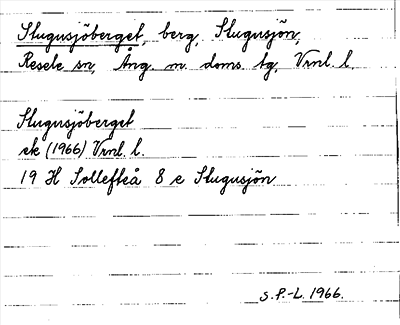 Stugusjöberget, berg, Stugusjön
Resele sn, Ång. m. doms. tg, Vrnl. l.
Stugusjöberget
ek (1966) Vrnl. l.
19 H Sollefteå 8 e Stugusjön
S. P.-L. 1966.